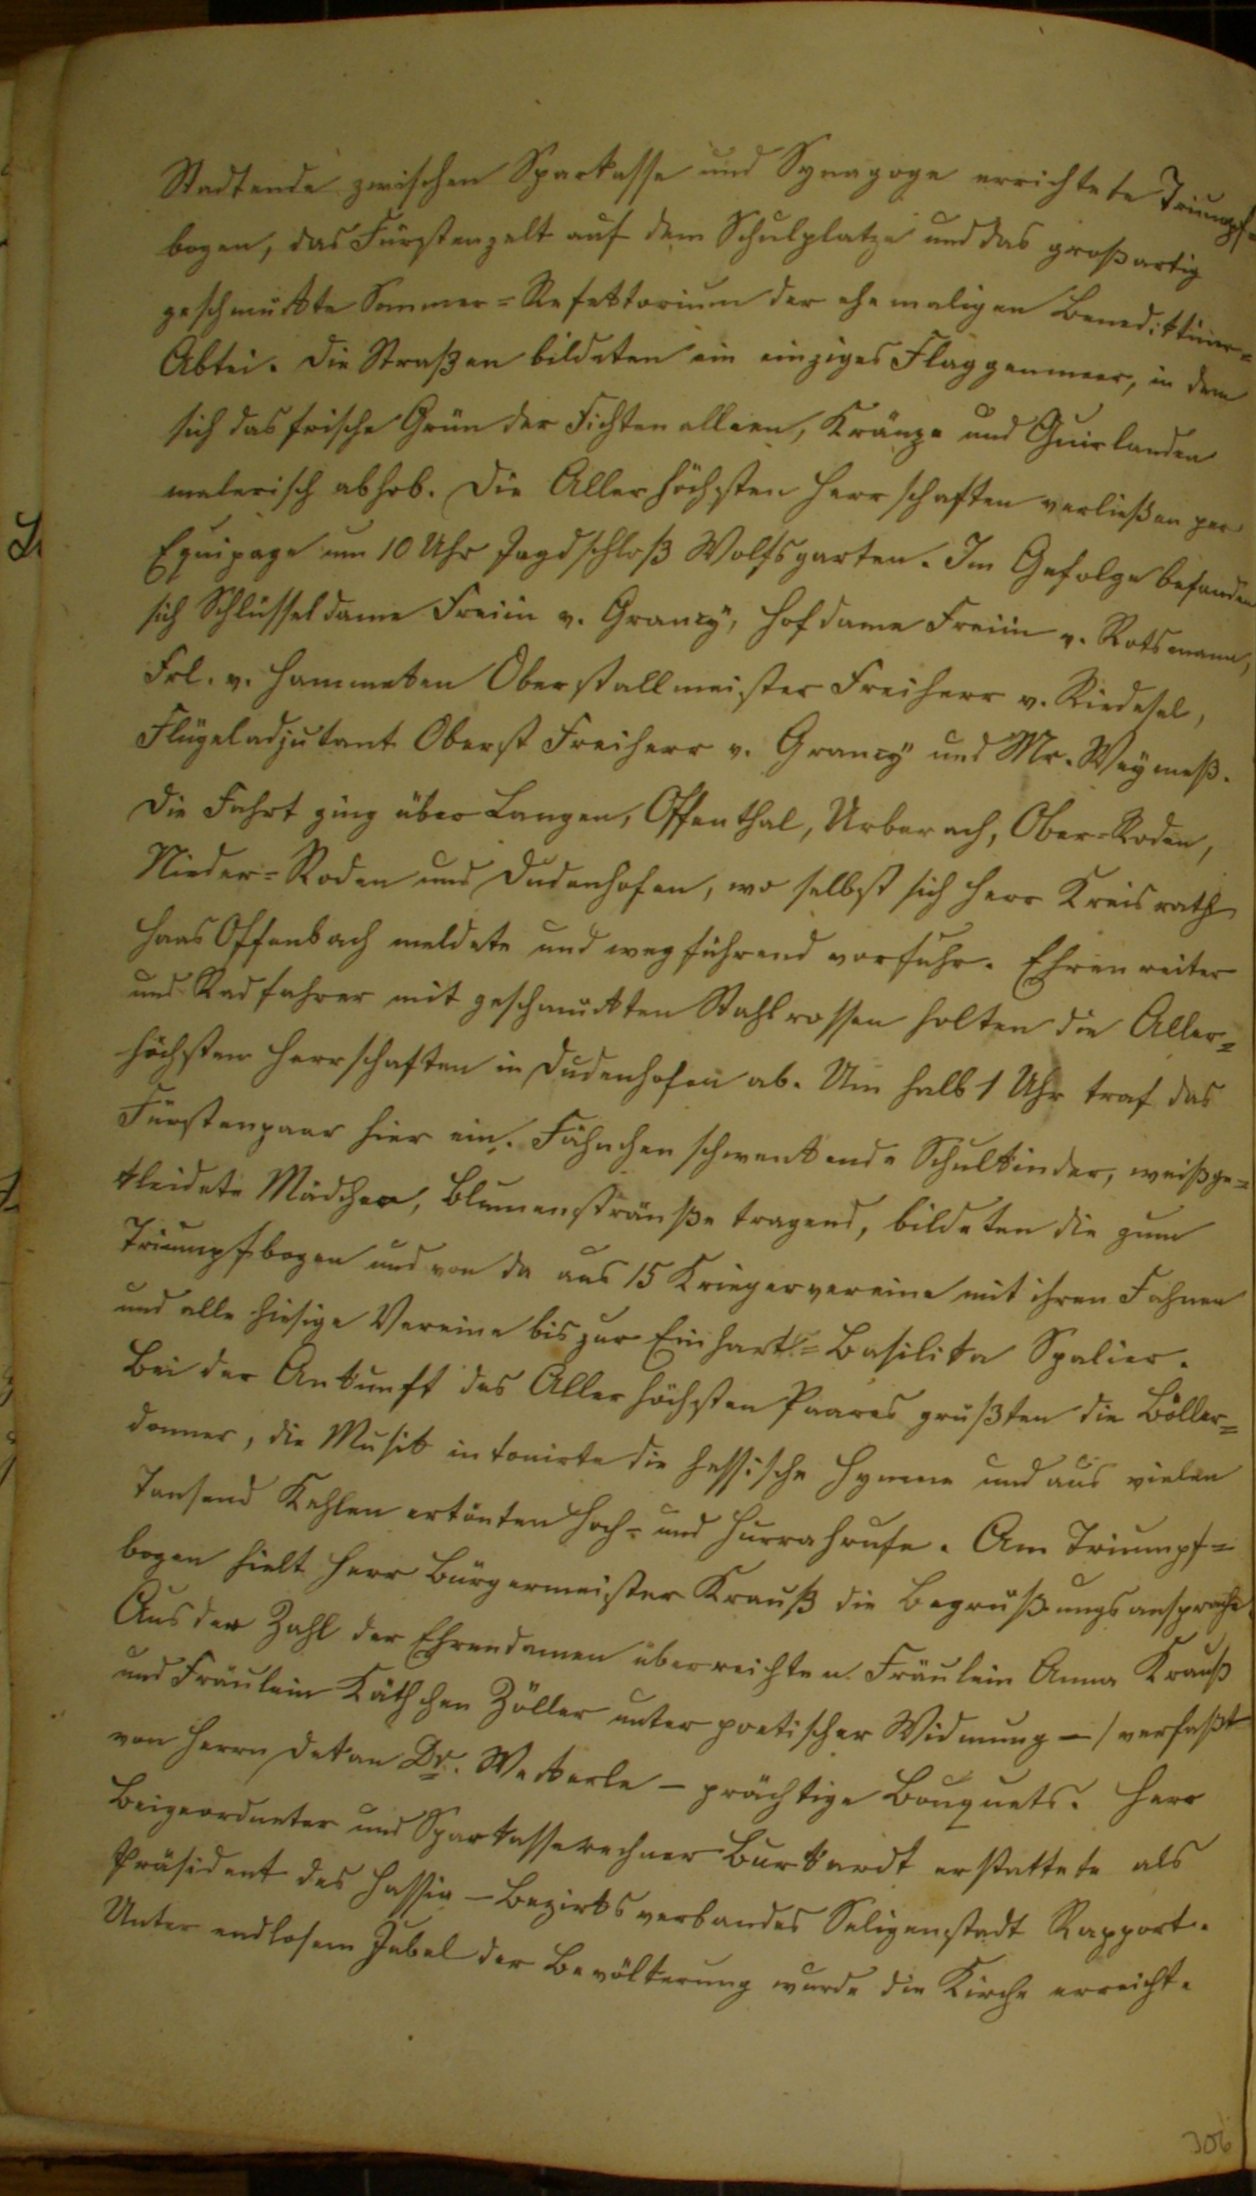 Stadtende zwischen Sparkasse und Synagoge errichtete Triumpf-
bogen, das Fürstenzelt auf dem Schulplatze und das großartig
geschmückte Sommer-Refektorium der ehemaligen Benediktiner-
Abtei. Die Straßen bildeten ein einziges Flaggenmeer, in dem
sich das frische Grün der Fichtenalleen, Kränze und Guirlanden
malerisch abhob. Die Allerhöchsten Herrschaften verließen per
Equipage um 10 Uhr Jagdschloß Wolfsgarten. Im Gefolge befanden
sich Schlüsseldame Freiin v. Grancy, Hofdame Freiin v. Rotsmann,
Frl. v. Oberstallmeister Freiherr v. Riedesel,
Flügeladjutant Oberst Freiherr v. Grancy und Mr. Weymeß.
Die Fahrt ging über Langen, Offenthal, Urberach, Ober-Roden,
Nieder-Roden und Dudenhofen, wo selbst sich Herr Kreisrath
Haas Offenbach meldete und wegführend vorfuhr. Ehrenreiter
und Radfahrer mit geschmückten Stahlrossen holten die Aller-
höchsten Herrschaften in Dudenhofen ab. Um halb 1 Uhr traf das
Fürstenpaar hier ein. Fähnchen schwenkende Schulkinder, weißge-
kleidete Mädchen, Blumensträuße tragend, bildeten die zum
Triumpfbogen und von da aus 15 Kriegervereine mit ihren Fahnen
und alle hiesige Vereine bis zur Einhart-Basilika Spalier.
Bei der Ankunft des Allerhöchsten Paares grüßten die Böller-
donner, die Musik intonirte die hessische Hymne und aus vielen
Tausend Kehlen ertönten Hoch- und Hurrahrufe. Am Triumpf-
bogen hielt Herr Bürgermeister Krauß die Begrüßungsansprache.
Aus der Zahl der Ehrendamen überreichten Fräulein Anna Krauß
und Fräulein Käthchen Zöller unter poetischer Widmung – verfaßt
von Herrn Dekan Dr. Weckerle – prächtige Bouquets. Herr
Beigeordneter und Sparkasserechner Burkardt erstattete als
Präsident des Hassia-Bezirksverbandes Seligenstadt Rapport.
Unter endlosem Jubel der Bevölkerung wurde die Kirche erreicht.
306